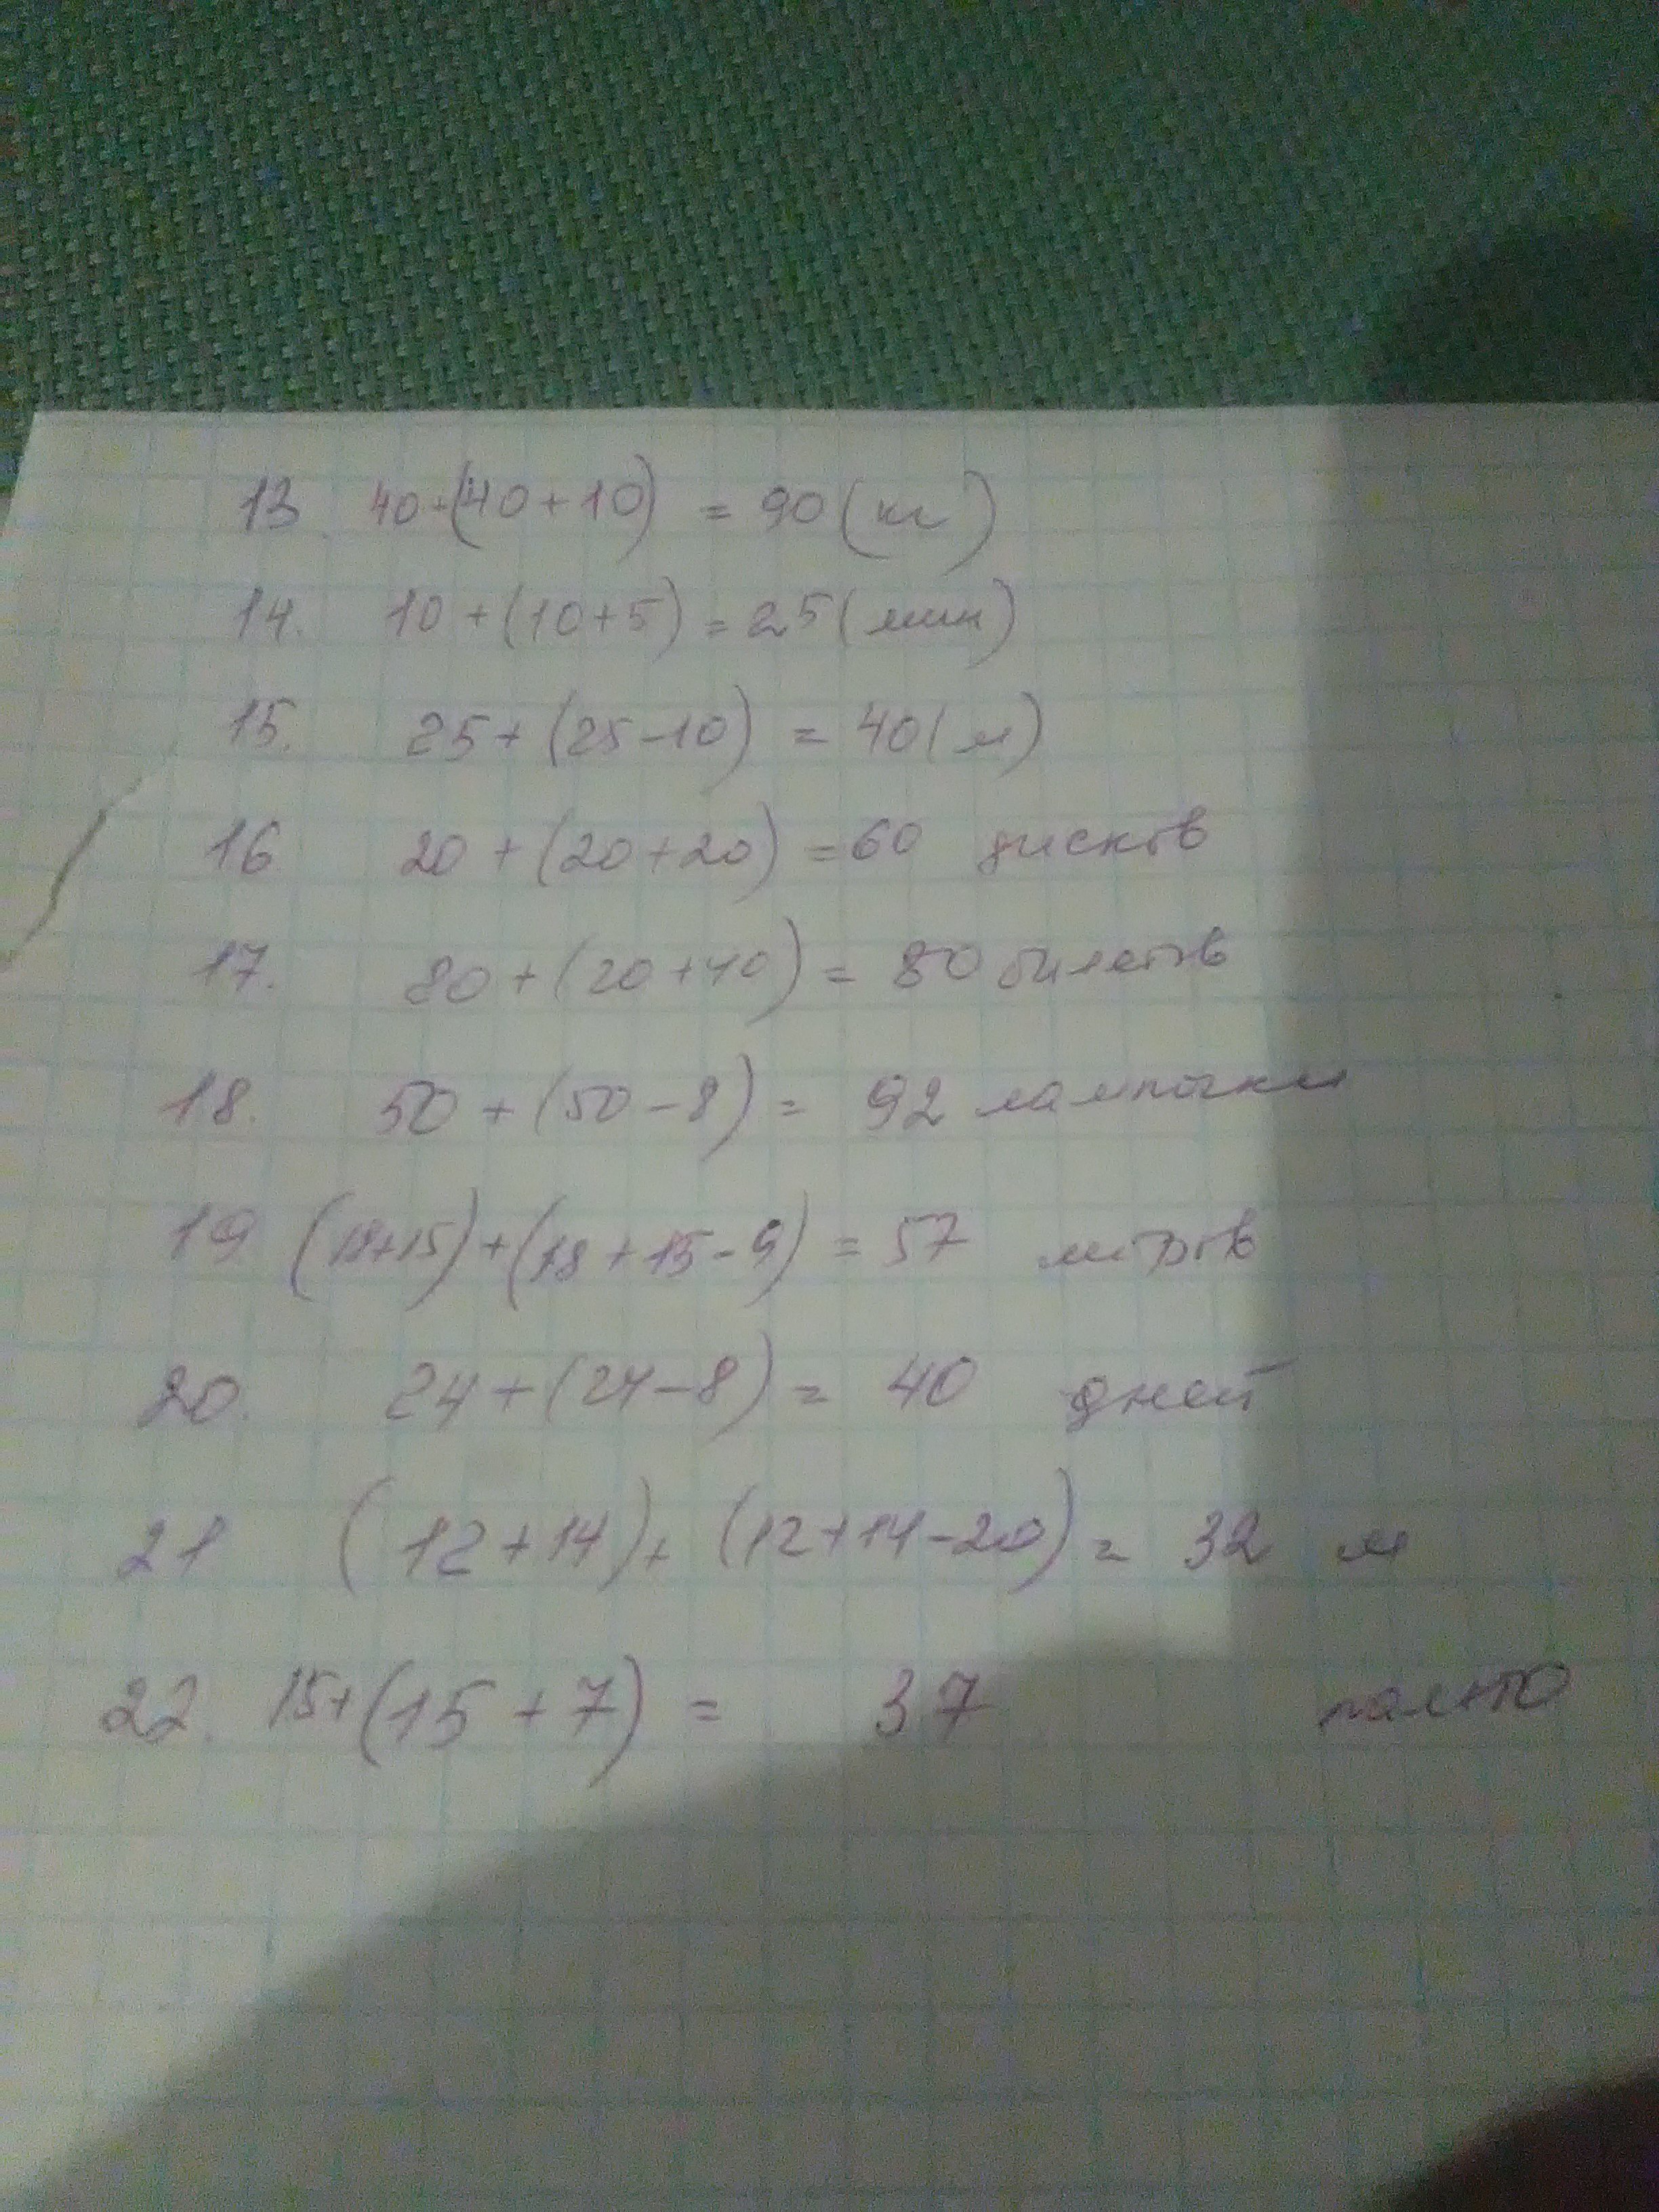 13 40+(40+10) = 90 (кг)
14. 10+(10+5) = 25 (мин)
15. 25+(25-10) = 40 (м)
16 20+(20+20) = 60 дисков
17. 20+(20+40) = 80 билетов
18. 50+(50-8) = 92 лампочки
19 (18+15)+(18+15-9) = 57 литров
20. 24+(24-8) = 40 дней
21 (12+14)+(12+14-20) = 32 м
22. 15+(15+7) = 37 пальто